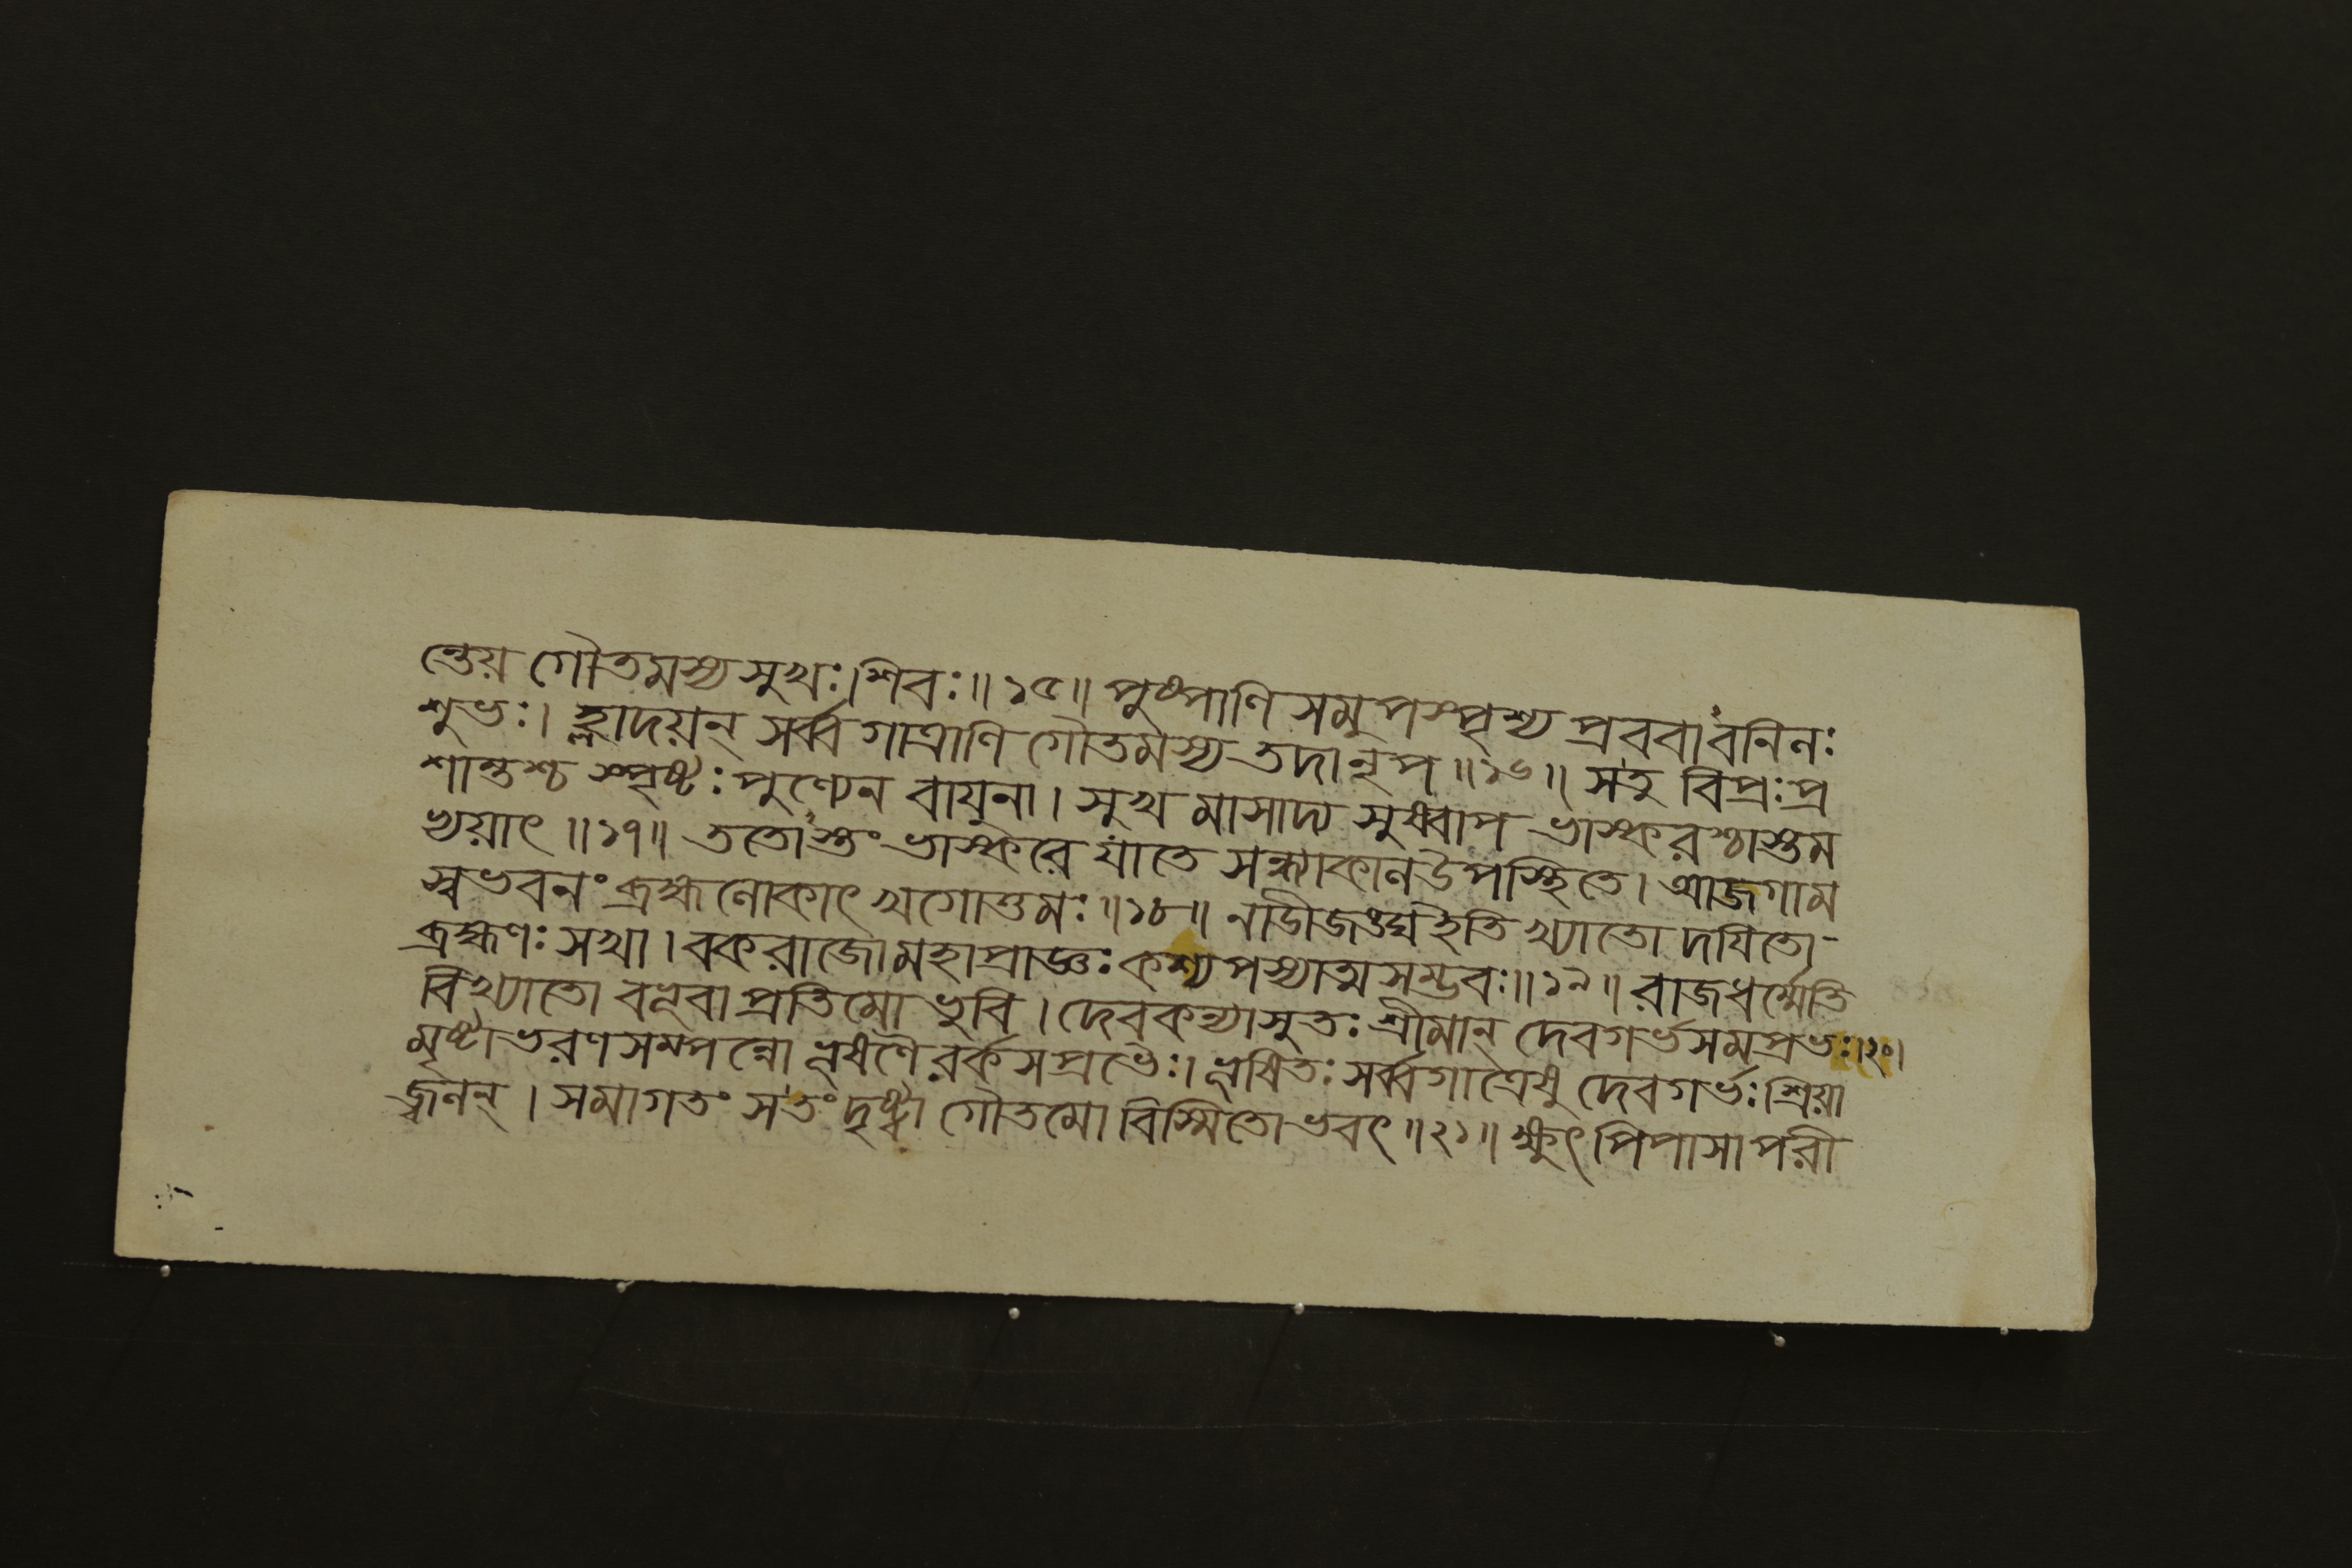 ন্তেয় গৌতমস্য সুখঃ।শিবঃ॥১৫॥ পুষ্পাণি সমুপস্পৃশ্য প্রববাবনিলঃ
শুভঃ। হ্লাদয়ন্ সর্ব্ব গাত্রাণি গৌতমস্য তদা নৃপ॥১৬॥ স তু বিপ্রঃ প্র
শান্তশ্চ স্পৃষ্টঃ পুণ্যেন বায়ুনা। সুখ মাসাদ্য সুষ্বাপ ভাস্করশ্চাস্তম
ভ্যয়াৎ॥১৭॥ ততোস্তং ভাস্করে যাতে সন্ধ্যাকাল উপস্থিতে। আজগাম
স্বভবনং ব্রহ্মলোকাৎ খগোত্তমঃ॥১৮॥ নাডীজঙ্ঘ ইতি খ্যাতো দযিতো-
ব্রহ্মণঃ সখা। বকরাজো মহাপ্রাজ্ঞঃ কশ্যপস্যাত্ম সম্ভবঃ॥১৯॥ রাজধর্ম্মেতি
বিখ্যাতো বভূবা প্রতিমো ভুবি। দেবকন্যাসুতঃ শ্রীমান্ দেবগর্ভসমপ্রভঃ।২০।
মৃষ্টাভরণ সম্পন্নো ভূষণৈ রর্কসপ্রভৈঃ। ভূষিতঃ সর্ব্বগাত্রেষু দেবগর্ভঃ শ্রিয়া
জ্বলন্। সমাগতং স তং দৃষ্ট্বা গৌতমো বিস্মিতোভবৎ॥২১॥ ক্ষুৎ পিপাসা পরী